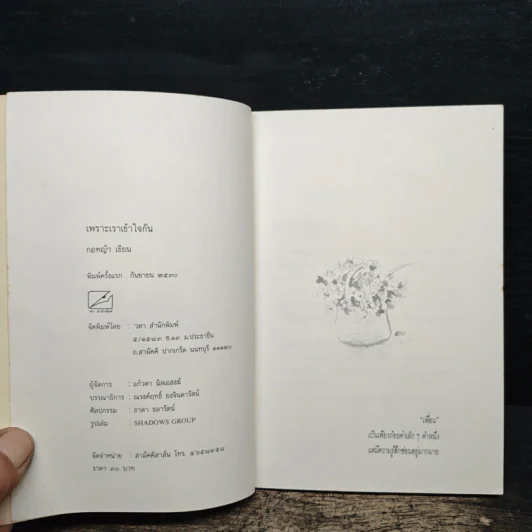 เพราะเราเข้าใจกัน
กอหญ้า เขียน
พิมพ์ครั้งแรก กันยายน ๒๕๓๐
จัดพิมพ์โดย : วลา สำนักพิมพ์
๕/๑๕๘๓ ซ.๑๓ ม.ประชาชื่น
ถ.สามัคคี ปากเกร็ด นนทบุรี ๑๑๑๒๐
ผู้จัดการ : แก้วตา
บรรณาธิการ : ณรงค์ฤทธิ์ ยงจินดารัตน์
ศิลปกรรม : ธาดา ธลารัตน์
รูปเล่ม : SHADOWS GROUP
จัดจำหน่าย : สามัคคีสาส์น โทร. ๔๖๕๘๔๕๘
ราคา ๓๐ บาท
"เพื่อน"
เป็นเพียงถ้อยคำเล็ก ๆ คำหนึ่ง
แต่มีความรู้สึกซ่อนอยู่มากมาย